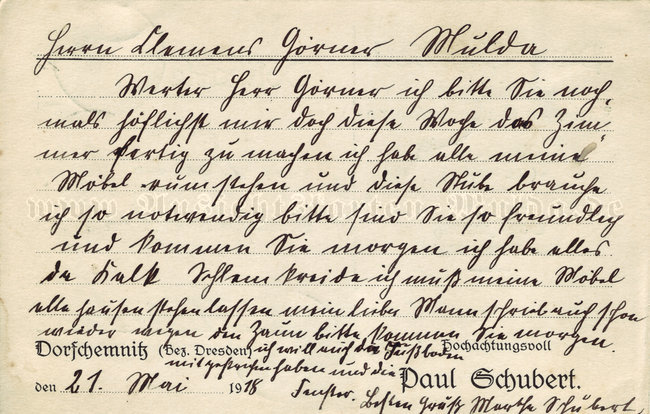 Herrn Clemens Görner Mulda
Werter Herr Görner ich bitte Sie noch
mals höflichst mir doch diese Woche das Zim-
mer fertig zu machen ich habe alle meine
Möbel rumstehen und diese Stube brauche
ich so notwendig bitte sind Sie so freundlich
und kommen Sie morgen ich habe alles
da Kalk Schlemkreide ich muß meine Möbel
alle hausen stehen lassen mein lieber Mann schrieb auch schon
wieder wegen den Zaun bitte kommen Sie morgen.
Dorfchemnitz (Bez. Dresden) ich will auch die Fußboden Hochachtungsvoll
mit gestrichen haben und die Paul Schubert.
den 21. Mai 1918 Fenster.
Besten Gruß Marthe Schubert